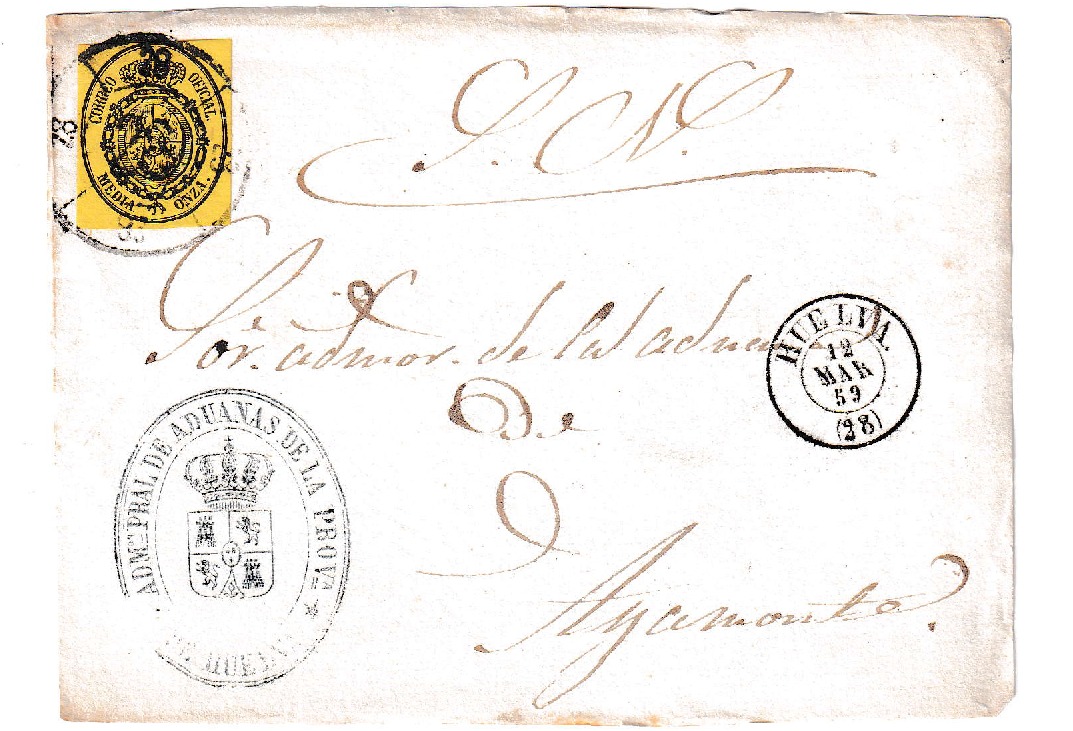 CORREO OFICIAL.
MEDIA ONZA.
28
28
28
S. N.
Sor. admor. de la adua
de
Ayamonte
HUELVA.
12
MAR
59
(28)
ADMON. PRAL. DE ADUANAS. DE LA PROVA.
DE HUELVA